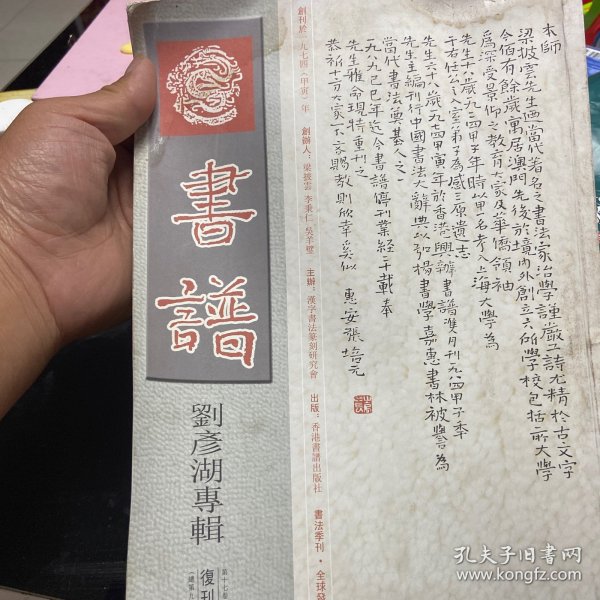 書譜
劉彥湖專輯
復刊
創刊於一九七四(甲寅)年 創辦人:梁披雲 李秉仁 吳羊璧 主辦:漢字書法篆刻研究會 出版:香港書譜出版社 書法季刊·全球發
本師
梁披雲先生迺當代著名之書法家治學謹嚴工詩尤精於古文字
今佰有餘歲寓居澳門先後於境內外創立六所學校包括二所大學
為深受景仰之教育大家及華僑領袖
先生十八歲一九二四甲子年時以第一名考入上海大學為
于右任公之入室弟子為感三原遺志
先生六十八歲一九七四甲寅年於香港興辦書譜雙月刊一九八四甲子年
先生主編刊行中國書法大辭典以弘揚書學嘉惠書林被譽為
當代書法奠基人之一
一九八九己巳年迄今書譜停刊業經二十載奉
先生雅命現特重刊之
恭祈十方大家不吝賜教則欣幸奚似 惠安張培元
孔夫子旧书网
www.kongfz.com